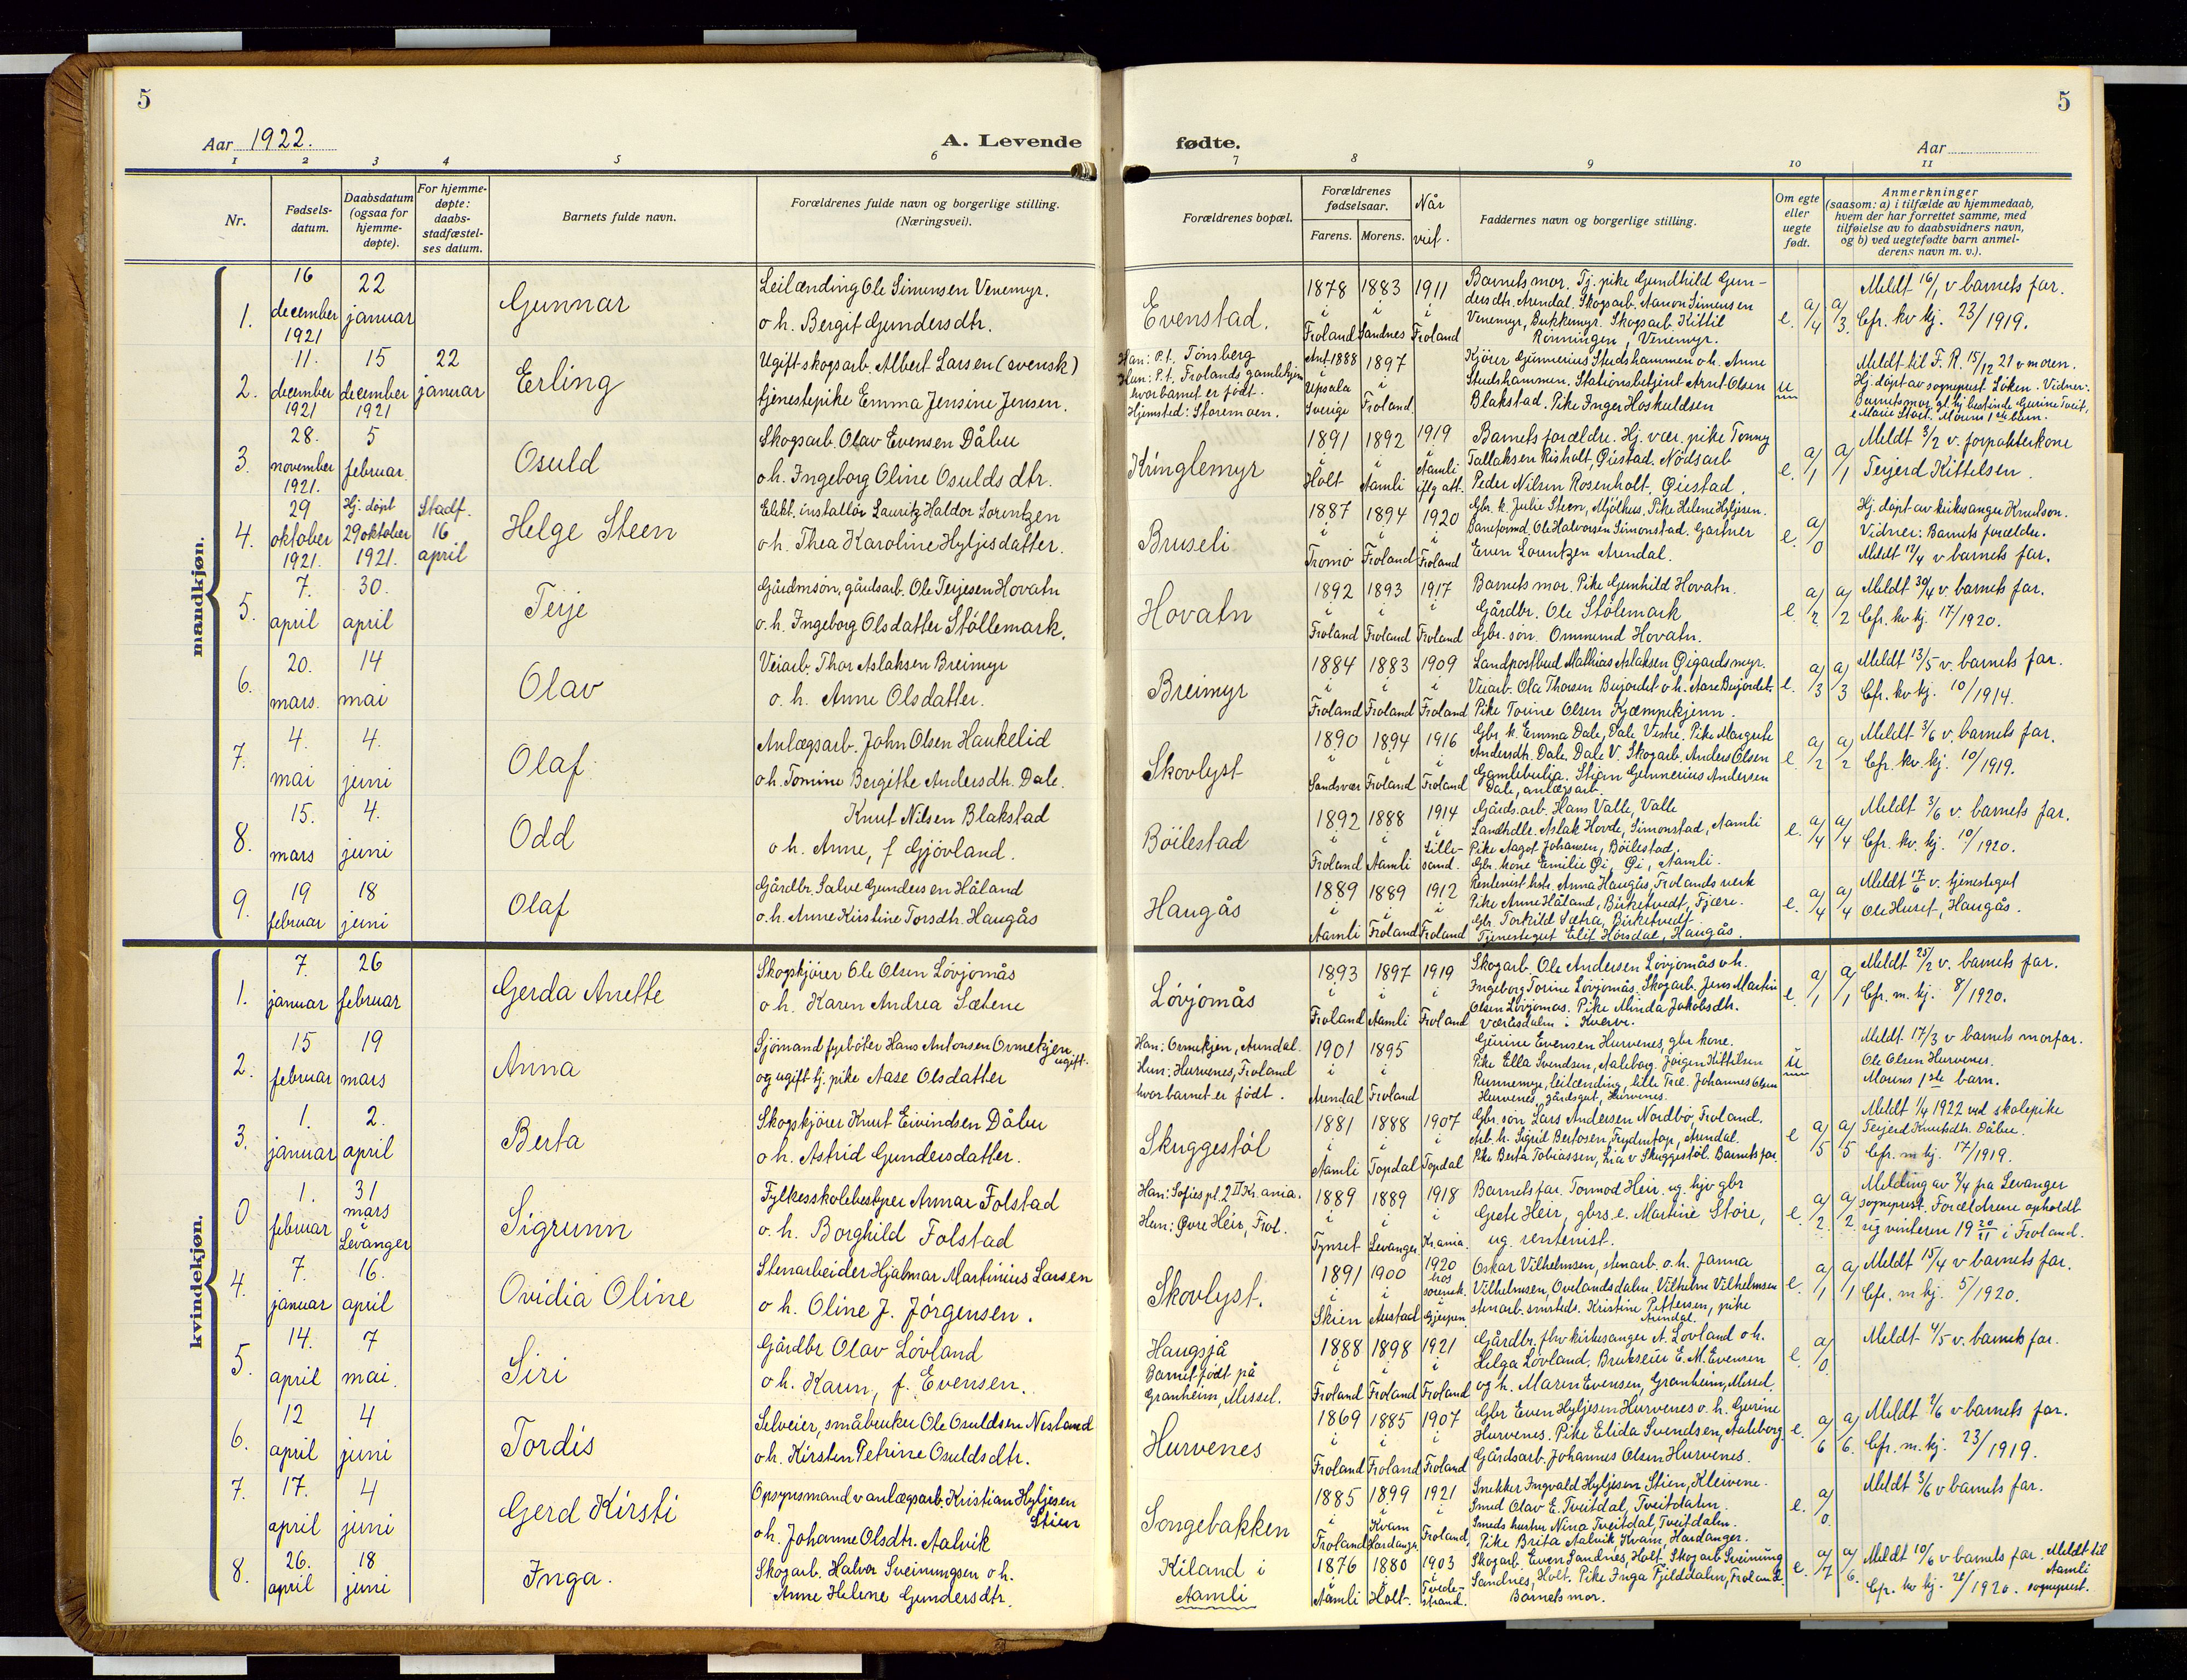 5
Aar 1922.
A. Levende
1 2 3 4 5 6
Nr.
Fødsels-
datum.
Daabsdatum
(ogsaa for
hjemme-
døpte).
For hjemme-
døpte:
daabs-
stadfæstel-
ses datum.
Barnets fulde navn.
Forældrenes fulde navn og borgerlige stilling.
(Næringsvei).
mandkjøn.
1.
16
december
1921
22
januar
Gunnar
Leilænding Ole Simensen Venemyr.
o h. Bergit Gundersdtr.
2.
11.
december
1921
15
december
1921
22
januar
Erling
Ugift skogsarb. Albert Larsen (svensk)
tjenestepike Emma Jensine Jensen.
3.
28.
november
1921.
5
februar
Osuld
Skogsarb. Olav Evensen Dåbu
o h. Ingeborg Oline Osulds dtr.
4.
29
oktober
1921.
Hj. døpt
29 oktober
1921.
Stadf.
16
april
Helge Steen
Elekt. installør Lauritz Haldor Lorentzen
o h. Thea Karoline Hyljesdatter.
5.
7.
april
30.
april
Terje
Gårdmsøn, gårdsarb. Ole Terjesen Hovatn
o. h. Ingeborg Olsdatter Støllemark.
6.
20.
mars.
14
mai
Olav
Veiarb. Thor Aslaksen Breimyr
o. h. Anne Olsdatter.
7.
4.
mai
4.
juni
Olaf
Anlægsarb. John Olsen Haukelid
o h. Tomine Bergitte Andersdtr. Dale.
8.
15.
mars
4.
juni
Odd
Knut Nilsen Blakstad
o h. Anne, f Gjövland.
9.
19
februar
18
juni
Olaf
Gårdbr. Salve Gundersen Håland
o. h. Anne Kristine Torsdtr. Haugås
kvindekjøn.
1.
7.
januar
26
februar
Gerda Anette
Skogskjører Ole Olsen Lövjomås
o h. Karen Andrea Sætene
2.
15
februar
19
mars
Anna
Sjömand fyrböter Hans Antonsen Ormekjen
ugift.
og ugift tj. pike Aase Olsdatter
3.
1.
januar
2.
april
Berta
Skogskjører Knut Eivindsen Dåbu
o h. Astrid Gundersdatter.
0
1.
februar
31
mars
i
Levanger
Sigrunn
Fylkesskolebestyrer Armar Folstad
o. h. Borghild Folstad
4.
7.
januar
16.
april
Ovidia Oline
Stenarbeider Hjalmar Martinius Larsen
o h. Oline J. Jörgensen.
5
14.
april
7
mai.
Siri
Gårdbr Olav Lövland
o h. Karen, f. Evensen.
6.
12
april
4
juni
Tordis
Selveier, småbruker Ole Osuldsen Nesland
o h. Kirsten Petrine Osuldsdtr.
7.
17.
april
4
juni
Gerd Kirsti
Opsynsmand v anlægsarb. Kristian Hyljesen
Stien
o h. Johanne Olsdtr. Aalvik
8.
26.
april
18
juni
Inga.
Skogarb. Halvor Sveinungsen o h.
Anne Helene Gundersdtr.
5
fødte.
Aar
7 8 9 10 11
Forældrenes bopæl.
Forældrenes
fødselsaar.
Farens. Morens.
Når
viet.
Faddernes navn og borgerlige stilling.
Om egte
eller
uegte
født.
Anmerkninger
(saasom: a) i tilfælde av hjemmedaab,
hvem der har forrettet samme, med
tilføielse av to daabsvidners navn,
og b) ved uegtefødte barn anmel-
derens navn m. v.).
Evenstad.
1878 1883 1911
i i i
Froland Sandnes Froland
Barnets mor. Tj. pike Gundhild Gun-
dersdtr. Arendal. Skogsarb. Aanon Simensen
Venemyr, Bukkemyr. Skogsarb. Kittil
Rönningen, Venemyr.
e. a/4 a/3.
Meldt 16/1 v barnets far.
Cfr. kv kj. 23/1919.
Han: P.t. Tönsberg
Hun: P.t. Frolands gamlehjem
hvor barnet er født.
Hjemsted: Storemoen.
Ant 1888 1897
i i
Upsala Froland.
Sverige
Kjörer Gunnerius Studshammen o h. Anne
Studshammen. Stationsbetjent Arnt Olsen
Blakstad. Pike Inger Hoskuldsen
u
Meldt til F. R. 15/12 21 v moren.
Hj. døpt av sogneprest Löken. Vidner:
Barnets mor
Kringlemyr
1891 1892 1919
i i
Holt Aamli Aamli
iflg att.
Barnets forældre. Hj. vær. pike Tonny
Tallaksen Risholt, Øiestad. Nödsarb
Peder Nilsen Rosenholt, Øiestad.
e. a/1 a/1
Meldt 3/2 v. forpakterkone
Terjerd Kittelsen.
Bruseli
1887 1894 1920
i i i
Tromö Froland Froland
Gbr. k. Julie Steen, Mjölhus. Pike Helene Hyljesen.
Baneformd. Ole Halvorsen Simonstad. Gartner
Even Lorentzen Arendal.
e. a/0
Hj. døpt av kirkesanger Knudson.
Vidner: Barnets forældre.
Meldt 12/4 v barnets far.
Hovatn
1892 1893 1917
i i i
Froland Froland Froland
Barnets mor. Pike Gunhild Hovatn.
Gårdbr. Ole Stölemark
Gbr. søn. Ommund Hovatn.
e a/2 a/2
Meldt 30/4 v. barnets far.
Cfr. kv kj. 17/1920.
Breimyr
1884 1883 1909
i i i
Froland Froland Froland
Landpostbud Mathias Aslaksen Øigardsmyr.
Veiarb. Ola Thorsen Beijordet o h. Aase Beijordet.
Pike Torine Olsen Kjæmpekjenn.
e. a/3 a/3
Meldt 13/5 v. barnets far.
Cfr. kv kj. 10/1914.
Skovlyst
1890 1894 1916
i i i
Sandsvær Froland Froland
Gbr k. Emma Dale, Dale Vestre. Pike Margrete
Andersdtr. Dale. Dale V. Skogarb. Anders Olsen
Gamlebulia. Stien Gunnerius Andersen
Dale, anlægsarb.
e. a/2 a/2
Meldt 3/6 v. barnets far.
Cfr. kv. kj. 10/1919.
Böilestad
1892 1888 1914
i i i
Froland Aamli Lille-
sand.
Gårds.arb. Hans Valle, Valle
Landhdle. Aslak Hovde, Simonstad, Aamli
Pike Aagot Johansen, Böilestad,
Gbr. kone Emilie Øi, Øi, Aamli.
e. a/4 a/4
Meldt 3/6 v. barnets far.
Cfr. kv. kj. 10/1920.
Haugås
1889 1889 1912
i i i
Aamli Froland Froland
Rentenist hstr. Anna Haugås, Frolands verk
Pike Anne Håland, Birketvedt, Fjære.
Gbr Torkild Sætra, Birketvedt
Tjenestegut Elif Hörsdal, Haugås.
e. a/4 a/4
Meldt 17/6 v. tjenestegut
Ole Huset, Haugås.
Lövjomås
1893 1897 1919
i i i
Froland Aamli Froland
Skogarb. Ole Andersen Lövjomås o h.
Ingeborg Torine Lövjomås. Skogarb. Jens Martin
Olsen Lövjomås. Pike Minda Jakobsdtr.
e. a/1 a/1
Meldt 25/2 v. barnets far.
Cfr. m. kj. 8/1920.
Han: Ormekjen, Arendal.
Hun: Hurvenes, Froland
hvor barnet er født.
1901 1895
i i
Arendal Froland
Gurine Evensen Hurvenes, gbr kone.
Pike Ella Svendsen, Aaleborg. Jörgen Kittilsen
Runnemyr, leilænding, lille Træ. Johannes Olsen
Hurvenes, gårdsgut, Hurvenes.
u
Meldt. 17/3 v barnets morfar.
Ole Olsen Hurvenes.
Morens 1ste barn.
Skuggestöl
1881 1888 1907
i i i
Aamli Topdal Topdal
Gbr. søn Lars Andersen Nordbö, Froland.
Arb. h. Sigrid Bertosen, Frydentop, Arendal.
Pike Berta Tobiassen, Lia v Skuggestöl. Barnets far.
e a/5 a/5
Meldt 1/4 1922 ved skolepike
Terjerd Knutsdtr. Dåbu.
Cfr. m kj. 17/1919.
Han: Sofies pl. 2 II Kr.ania.
Hun: Øvre Heir, Frol.
1889 1889 1918
i i i
Tynset Levanger Kr.ania.
Barnets far. Tormod Heir. ug. hjv gbr
Grete Heir, gbrs. e. Martine Störe,
ug. rentenist.
e. a/2. a/2.
Melding av 3/4 fra Levanger
sogneprest. Forældrene opholdt
sig vinteren 19 20/21 i Froland.
Skovlyst.
1891 1900 1920
hos
sorensk.
i i i
Skien Austad Gjerpen
Oskar Vilhelmsen, stenarb. o. h. Janna
Vilhelmsen, Ovelandsdalen. Vilhelm Vilhelmsen
stenarb. smsteds. Kristine Pettersen, pike
Arendal.
e. a/1 a/1
Meldt 15/4 v barnets far.
Cfr. m kj. 5/1920.
Haugsjå
Barnet født på
Granheim, Messel.
1888 1898 1921
i i i
Froland Froland Froland
Gårdbr. fhv kirkesanger A. Lövland o h.
Helga Lövland. Brukseier E. M. Evensen
og h. Maren Evensen, Granheim, Messel.
e. a/0
Meldt 4/5 v. barnets far.
Hurvenes
1869 1885 1907
i i i
Froland Froland Froland
Gbr Even Hyljesen Hurvenes o. h. Gurine
Hurvenes. Pike Elida Svendsen, Aaleborg.
Gårdsarb. Johannes Olsen Hurvenes.
e. a/6 a/6.
Meldt 2/6 v barnets far.
Cfr. m. kj. 23/1919.
Songebakken
1885 1899 1921
i i i
Froland Kvam
Hardanger Froland,
Snekker Ingvald Hyljesen Stien, Kleivene.
Smed Olav E. Tveitdal, Tveitdalen.
Smeds hustru Nina Tveitdal, Tveitdalen.
Pike Brita Aalvik, Kvam, Hardanger.
e. a/0.
Meldt 3/6 v barnets far.
Kiland i
Aamli
1876 1880 1903
i i i
Aamli Holt. Tvede-
strand.
Skogarb. Even Sandnes, Holt. Skogarb Sveinung
Sandnes, Holt. Pike Inga Fjelddalen, Froland.
Barnets mor.
e. a/7 a/6.
Meldt 10/6 v barnets far. Meldt til
Aamli
sogneprest.
Cfr. kv kj. 21/1920.